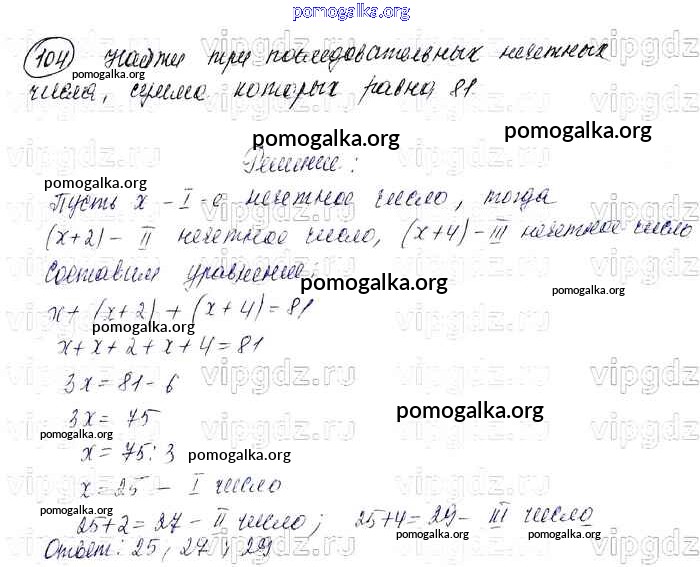 pomogalka.org
vipgdz.ru
104 Найти три последовательных нечетных
pomogalka.org
числа, сумма которых равна 81.
pomogalka.org
pomogalka.org
Решение:
vipgdz.ru
pomogalka.org
Пусть x - I-е нечетное число, тогда
(x+2) - II нечетное число, (x+4) - III нечетное число
Составим уравнение:
pomogalka.org
pomogalka.org
x + (x+2) + (x+4) = 81
vipgdz.ru
pomogalka.org
x + x + 2 + x + 4 = 81
3x = 81 - 6
vipgdz.ru
3x = 75
pomogalka.org
pomogalka.org
x = 75 : 3
pomogalka.org
vipgdz.ru
x = 25 - I число
25+2 = 27 - II число; 25+4 = 29 - III число
pomogalka.org
pomogalka.org
Ответ: 25; 27; 29
vipgdz.ru